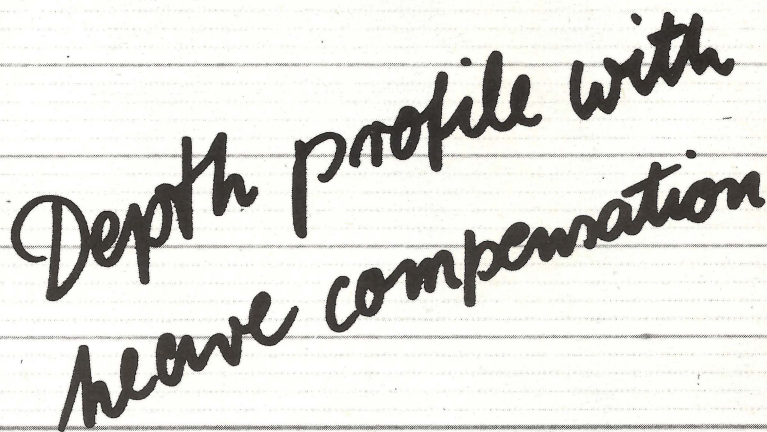 Depth profile with
heave compensation